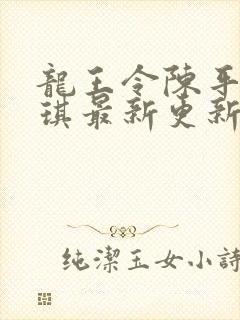 龍王令陳平
琪最新更新
纯潔玉女小詩